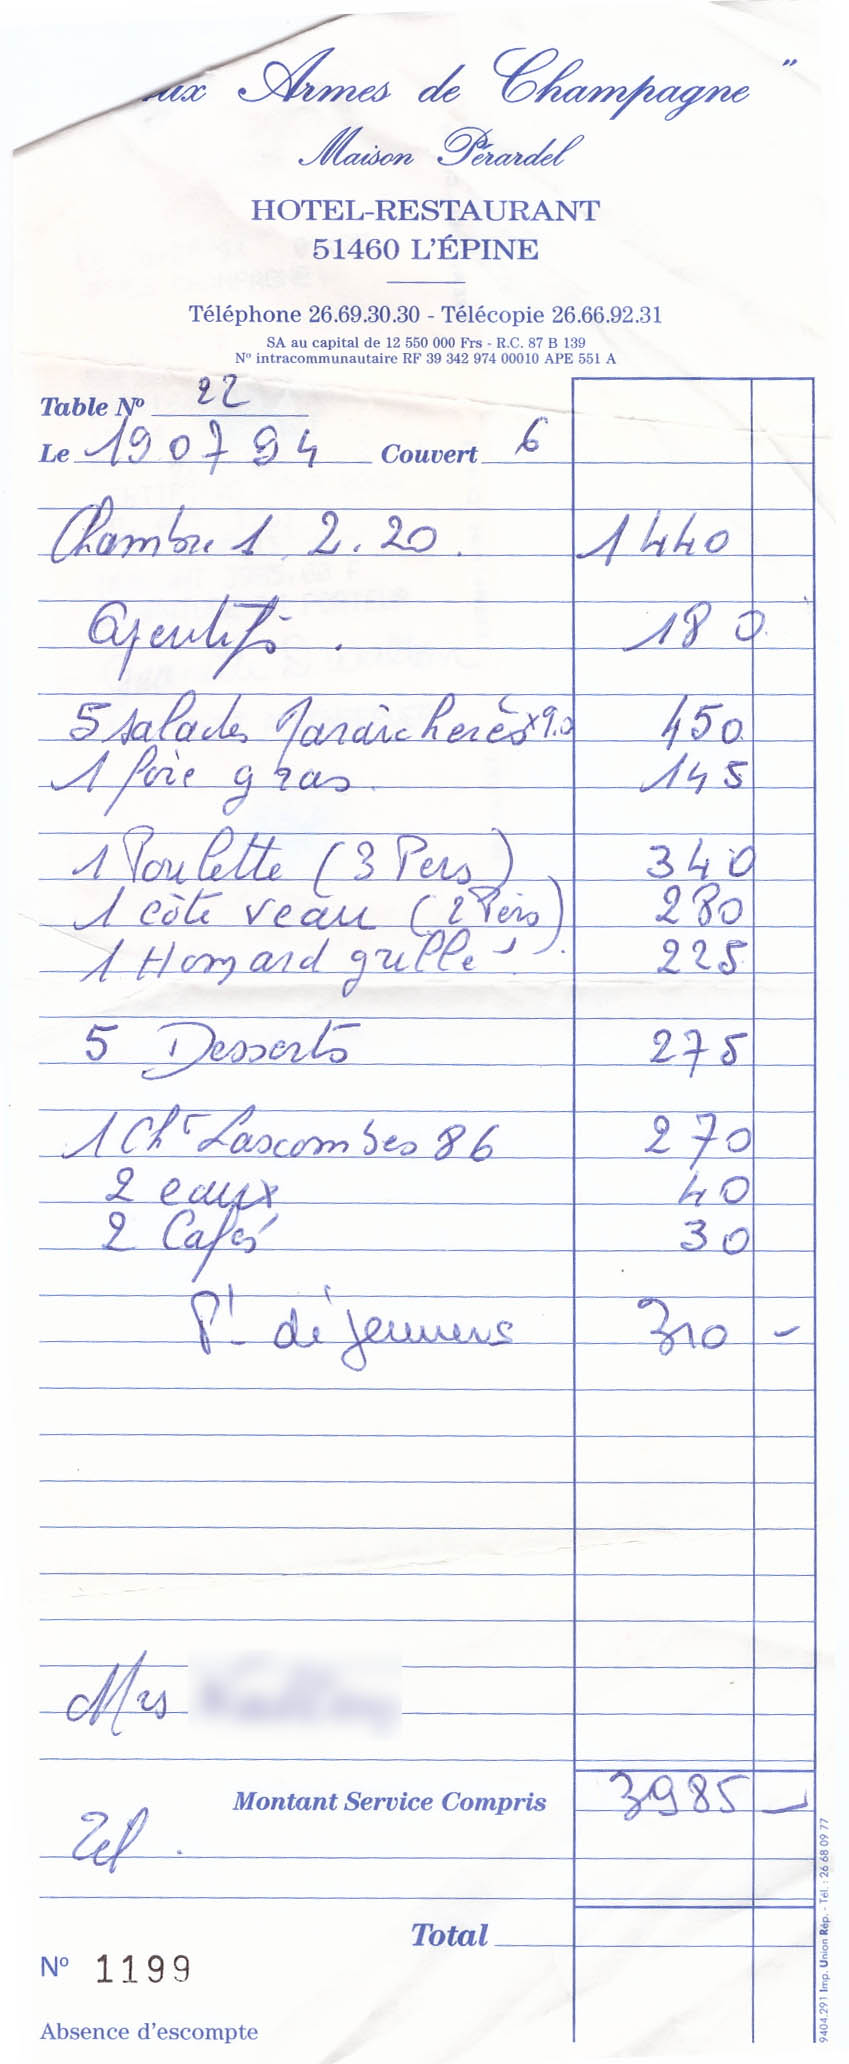 aux Armes de Champagne "
Maison Pérardel
HOTEL-RESTAURANT
51460 L'ÉPINE
Téléphone 26.69.30.30 - Télécopie 26.66.92.31
SA au capital de 12 550 000 Frs - R.C. 87 B 139
Nº intracommunautaire RF 39 342 974 00010 APE 551 A
Table Nº 22
Le 190794 Couvert 6
Chambre 1. 2. 20. 1440
Aperitifs. 180
5 salades Maraicherès x90 450
1 foie gras. 145
1 Poulette (3 Pers) 340
1 côte veau (2 Pers) 280
1 Homard grillé 225
5 Desserts 275
1 Cht Lascombes 86 270
2 eaux 40
2 Cafés 30
Pt déjeuners 310 -
Mrs
Montant Service Compris 3985 -
Tel.
Total
Nº 1199
Absence d'escompte
9404.291 Imp. Union Rép. - Tél. : 26 68 09 77